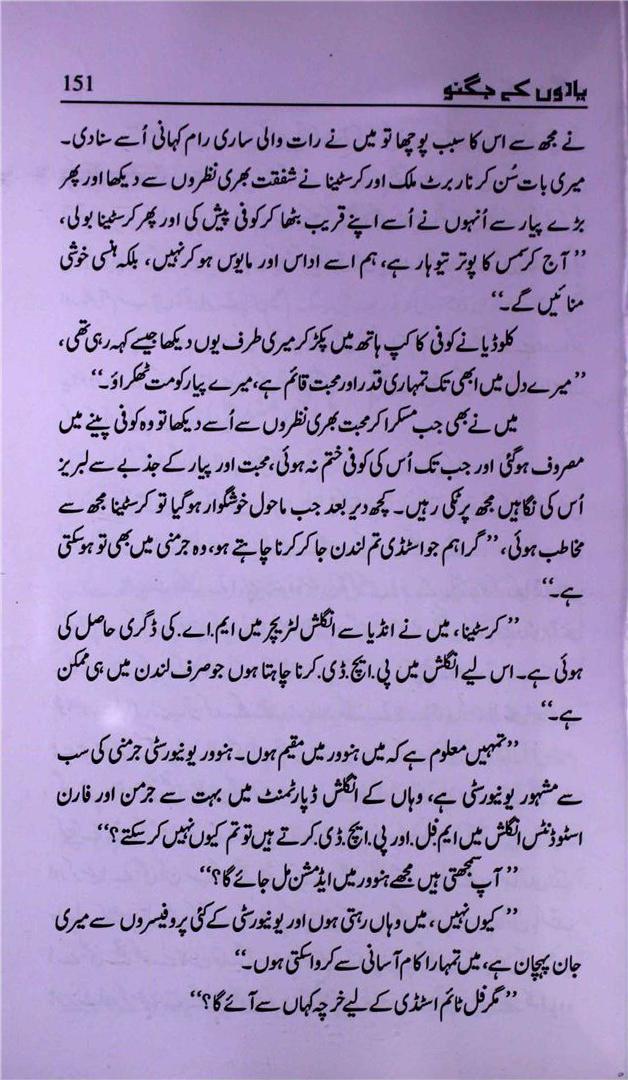 یادوں کے جگنو 151
نے مجھ سے اس کا سبب پوچھا تو میں نے رات والی ساری رام کہانی اُسے سنا دی۔
میری بات سُن کر نار برٹ ملک اور کرسٹینا نے شفقت بھری نظروں سے دیکھا اور پھر
بڑے پیار سے اُنہوں نے اُسے اپنے قریب بٹھا کر کوفی پیش کی اور پھر کرسٹینا بولی،
”آج کرسمس کا پوتر تیوہار ہے، ہم اسے اداس اور مایوس ہو کر نہیں، بلکہ ہنسی خوشی
منائیں گے۔“
کلوڈیا نے کوفی کا کپ ہاتھ میں پکڑ کر میری طرف یوں دیکھا جیسے کہہ رہی تھی،
”میرے دل میں ابھی تک تمہاری قدر اور محبت قائم ہے، میرے پیار کو مت ٹھکراؤ۔“
میں نے بھی جب مسکرا کر محبت بھری نظروں سے اُسے دیکھا تو وہ کوفی پینے میں
مصروف ہوگئی اور جب تک اُس کی کوفی ختم نہ ہوئی، محبت اور پیار کے جذبے سے لبریز
اُس کی نگاہیں مجھ پر ٹکی رہیں۔ کچھ دیر بعد جب ماحول خوشگوار ہوگیا تو کرسٹینا مجھ سے
مخاطب ہوئی، ”گراہم جو اسٹڈی تم لندن جا کر کرنا چاہتے ہو، وہ جرمنی میں بھی تو ہوسکتی
ہے۔“
”کرسٹینا، میں نے انڈیا سے انگلش لٹریچر میں ایم.اے. کی ڈگری حاصل کی
ہوئی ہے۔ اس لیے انگلش میں پی.ایچ.ڈی. کرنا چاہتا ہوں جو صرف لندن میں ہی ممکن
ہے۔“
”تمہیں معلوم ہے کہ میں ہنوور میں مقیم ہوں۔ ہنوور یونیورسٹی جرمنی کی سب
سے مشہور یونیورسٹی ہے، وہاں کے انگلش ڈپارٹمنٹ میں بہت سے جرمن اور فارن
اسٹوڈنٹس انگلش میں ایم.فل. اور پی.ایچ.ڈی. کرتے ہیں تو تم کیوں نہیں کر سکتے؟“
”آپ سمجھتی ہیں مجھے ہنوور میں ایڈمشن مل جائے گا؟“
”کیوں نہیں، میں وہاں رہتی ہوں اور یونیورسٹی کے کئی پروفیسروں سے میری
جان پہچان ہے، میں تمہارا کام آسانی سے کروا سکتی ہوں۔“
”مگر فل ٹائم اسٹڈی کے لیے خرچہ کہاں سے آئے گا؟“